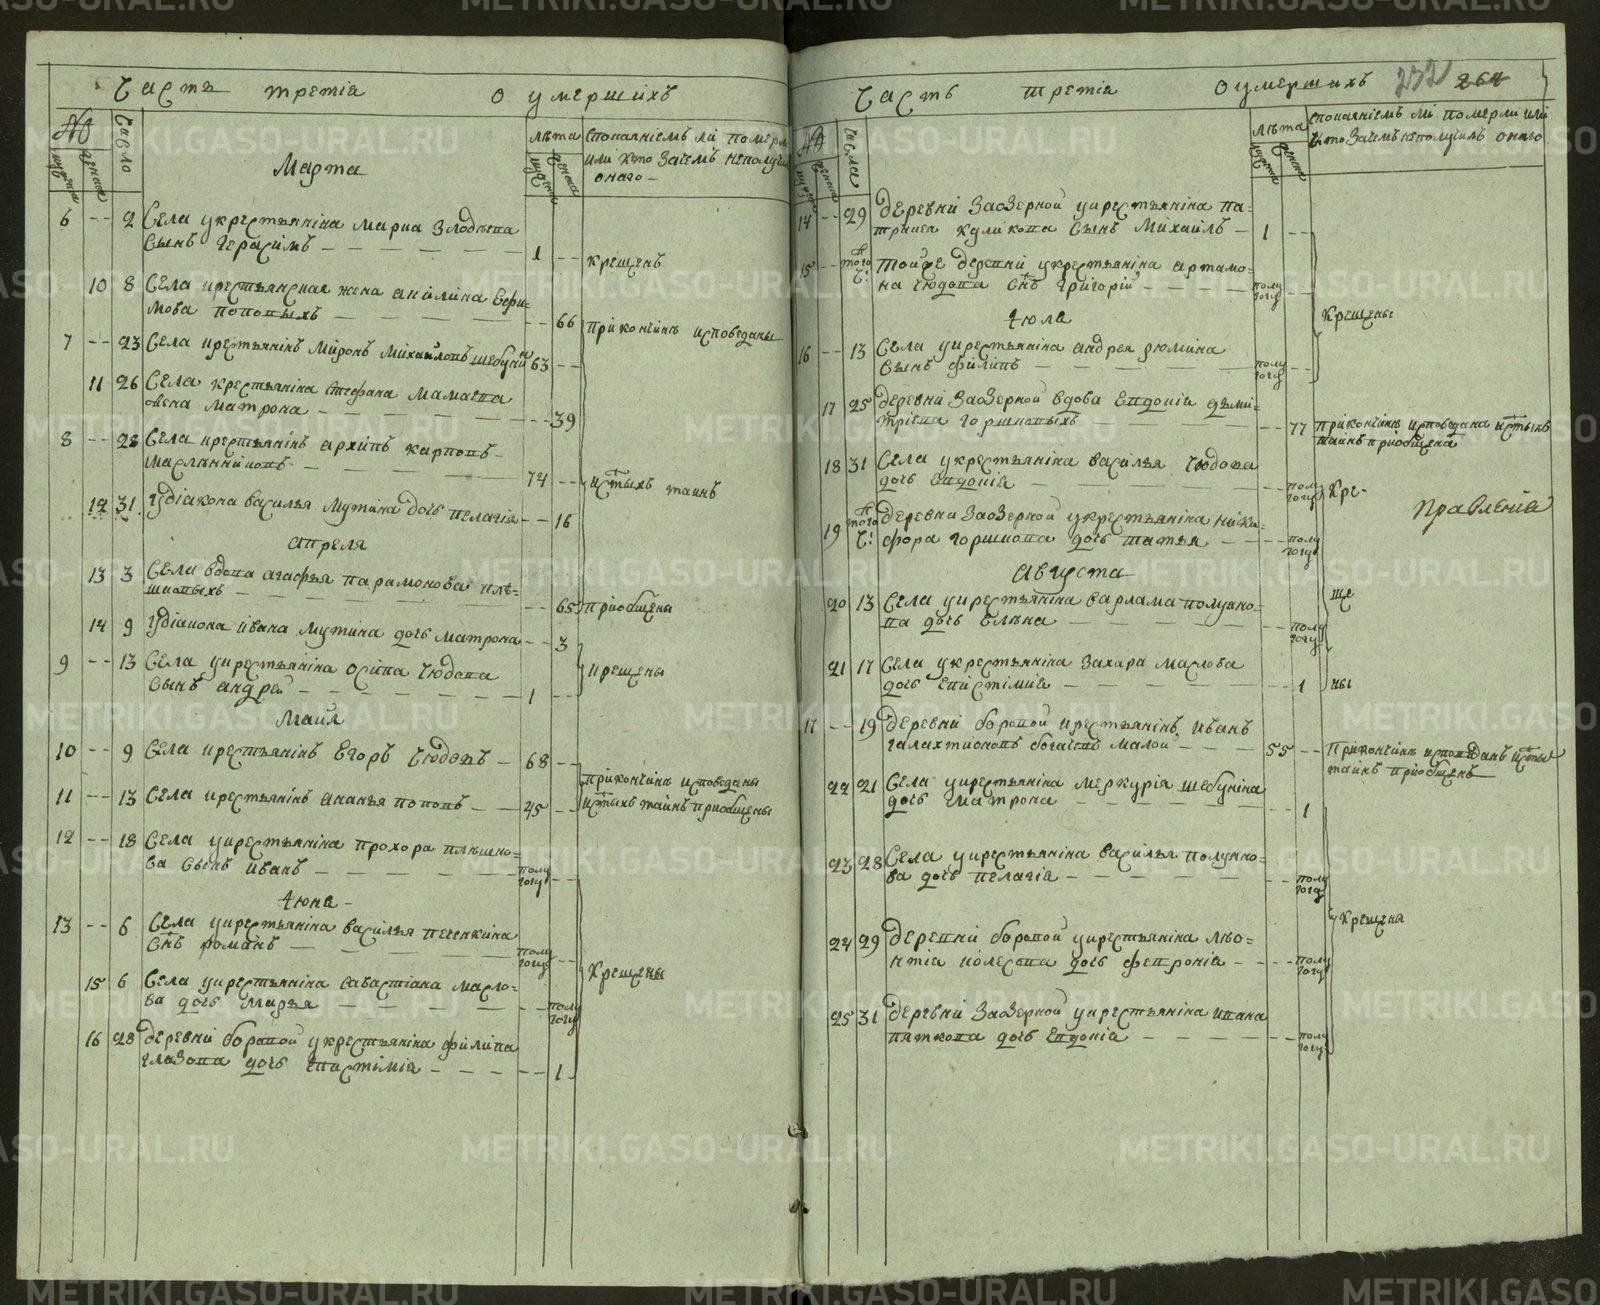 Часть третія о умершихъ
№ число лѣта
спокаяніемъ ли померли
или кто зачемъ неполучи
онаго
Марта
6 -- 2 Села укрестьяніна Марка Злодѣева
сынъ Герасимъ 1 --
крещенъ
10 8 Села крестьянская жена Акилина Ефи-
мова Поповыхъ -- 66
прикончинѣ исповеданы
7 -- 23 Села крестьянінъ Миронъ Михайловъ Шебунинъ 63 --
11 26 Села крестьяніна Стефана Мамаева
жена Матрона -- 39
8 -- 28 Села крестьянінъ Архипъ Карповъ
Маслянниковъ 74 --
и стыхъ таинъ
12 31 Удіакона Василья Мутина дочь Пелагія -- 16
Апреля
13 3 Села вдова Агафья Парамонова Плѣ-
шковыхъ -- 65
приобщены
14 9 Удіакона Ивана Мутина дочь Матрона -- 3
9 -- 13 Села укрестьяніна Осипа Чюдова
сынъ Андрей 1 --
крещены
Маия
10 -- 9 Села крестьянінъ Егоръ Чюдовъ 68 --
прикончинѣ исповеданы
11 -- 13 Села крестьянінъ Ананья Поповъ 45 --
и стыхъ таинъ приобщены
12 -- 18 Села укрестьяніна Прохора Плѣшко-
ва сынъ Иванъ полу году --
Июня
13 -- 6 Села укрестьяніна Василья Печенкина
снъ Романъ полу году --
15 6 Села укрестьяніна Савастіана Масло-
ва дочь Марья -- полу году
Крещены
16 28 Деревни Боровой укрестьяніна Филипа
Глазова дочь Епистимія -- 1
Часть третія о умершихъ 272 264
№ числа лѣта
спокаяніемъ ли померли или
кто зачемъ неполучилъ онаго
14 -- 29 Деревни Заозерной укрестьяніна Па-
трикея Куликова сынъ Михаилъ 1 --
15 -- того ч: Тойже деревни укрестьяніна Артамо-
на Чюдова снъ Григорій полу году --
Июла
Крещены
16 -- 13 Села укрестьяніна Андрея Зюмина
сынъ Филипъ полу году --
17 25 Деревни Заозерной вдова Евдокіа Дъми-
тріева Горшковыхъ -- 77
прикончинѣ исповедана и стыхъ
таинъ приобщена
18 31 Села укрестьяніна Василья Чюдова
дочь Евдокіа -- полу году
Кре-
Правленіа
19 того ч: Деревни Заозерной укрестьяніна Ники-
фора Горшкова дочь Татья -- полу году
Августа
20 13 Села укрестьяніна Варлама Полуяно-
ва дочь Елѣна -- полу году
ще
21 17 Села укрестьяніна Захара Маслова
дочь Епистіміа -- 1
ны
17 -- 19 Деревни Боровой крестьянінъ Иванъ
Галахтионовъ Богачевъ Малой 55 --
Прикончинѣ исповѣданъ и стыхъ
таинъ приобщенъ
22 21 Села укрестьяніна Меркуріа Шебуніна
дочь Матрона -- 1
23 28 Села укрестьяніна Василья Полуяно-
ва дочь Пелагіа -- полу году
Крещена
24 29 Деревни Боровой укрестьяніна Лѣо-
нтіа Колесова дочь Февроніа -- полу году
25 31 Деревни Заозерной укрестьяніна Ивана
Пяткова дочь Евдокіа -- полу году
METRIKI.GASO-URAL.RU